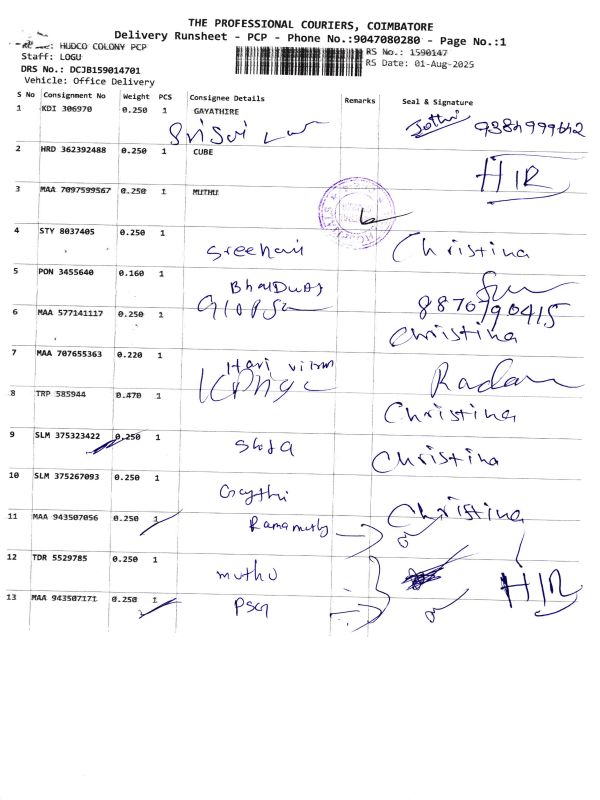 THE PROFESSIONAL COURIERS, COIMBATORE
Delivery Runsheet - PCP - Phone No.:9047080280 - Page No.:1
HUDCO COLONY PCP
RS No.: 1590147
Staff: LOGU
RS Date: 01-Aug-2025
DRS No.: DCJB159014701
Vehicle: Office Delivery
S No Consignment No Weight PCS Consignee Details Remarks Seal & Signature
1 KDI 306970 0.250 1 GAYATHIRE
Sri Sai Jothi
2 HRD 362392488 0.250 1 CUBE
HIR
3 MAA 7097599567 0.250 1 MUTHU
4 STY 8037405 0.250 1
Sreehari Christina
5 PON 3455640 0.160 1
6 MAA 577141117 0.250 1
8870790415
Christina
7 MAA 707655363 0.220 1
Hari
8 TRP 585944 0.470 1
Christina
9 SLM 375323422 0.250 1
Christina
10 SLM 375267093 0.250 1
Gaythri Christina
11 MAA 943507056 0.250 1
12 TDR 5529785 0.250 1
muthu HIR
13 MAA 943507171 0.250 1